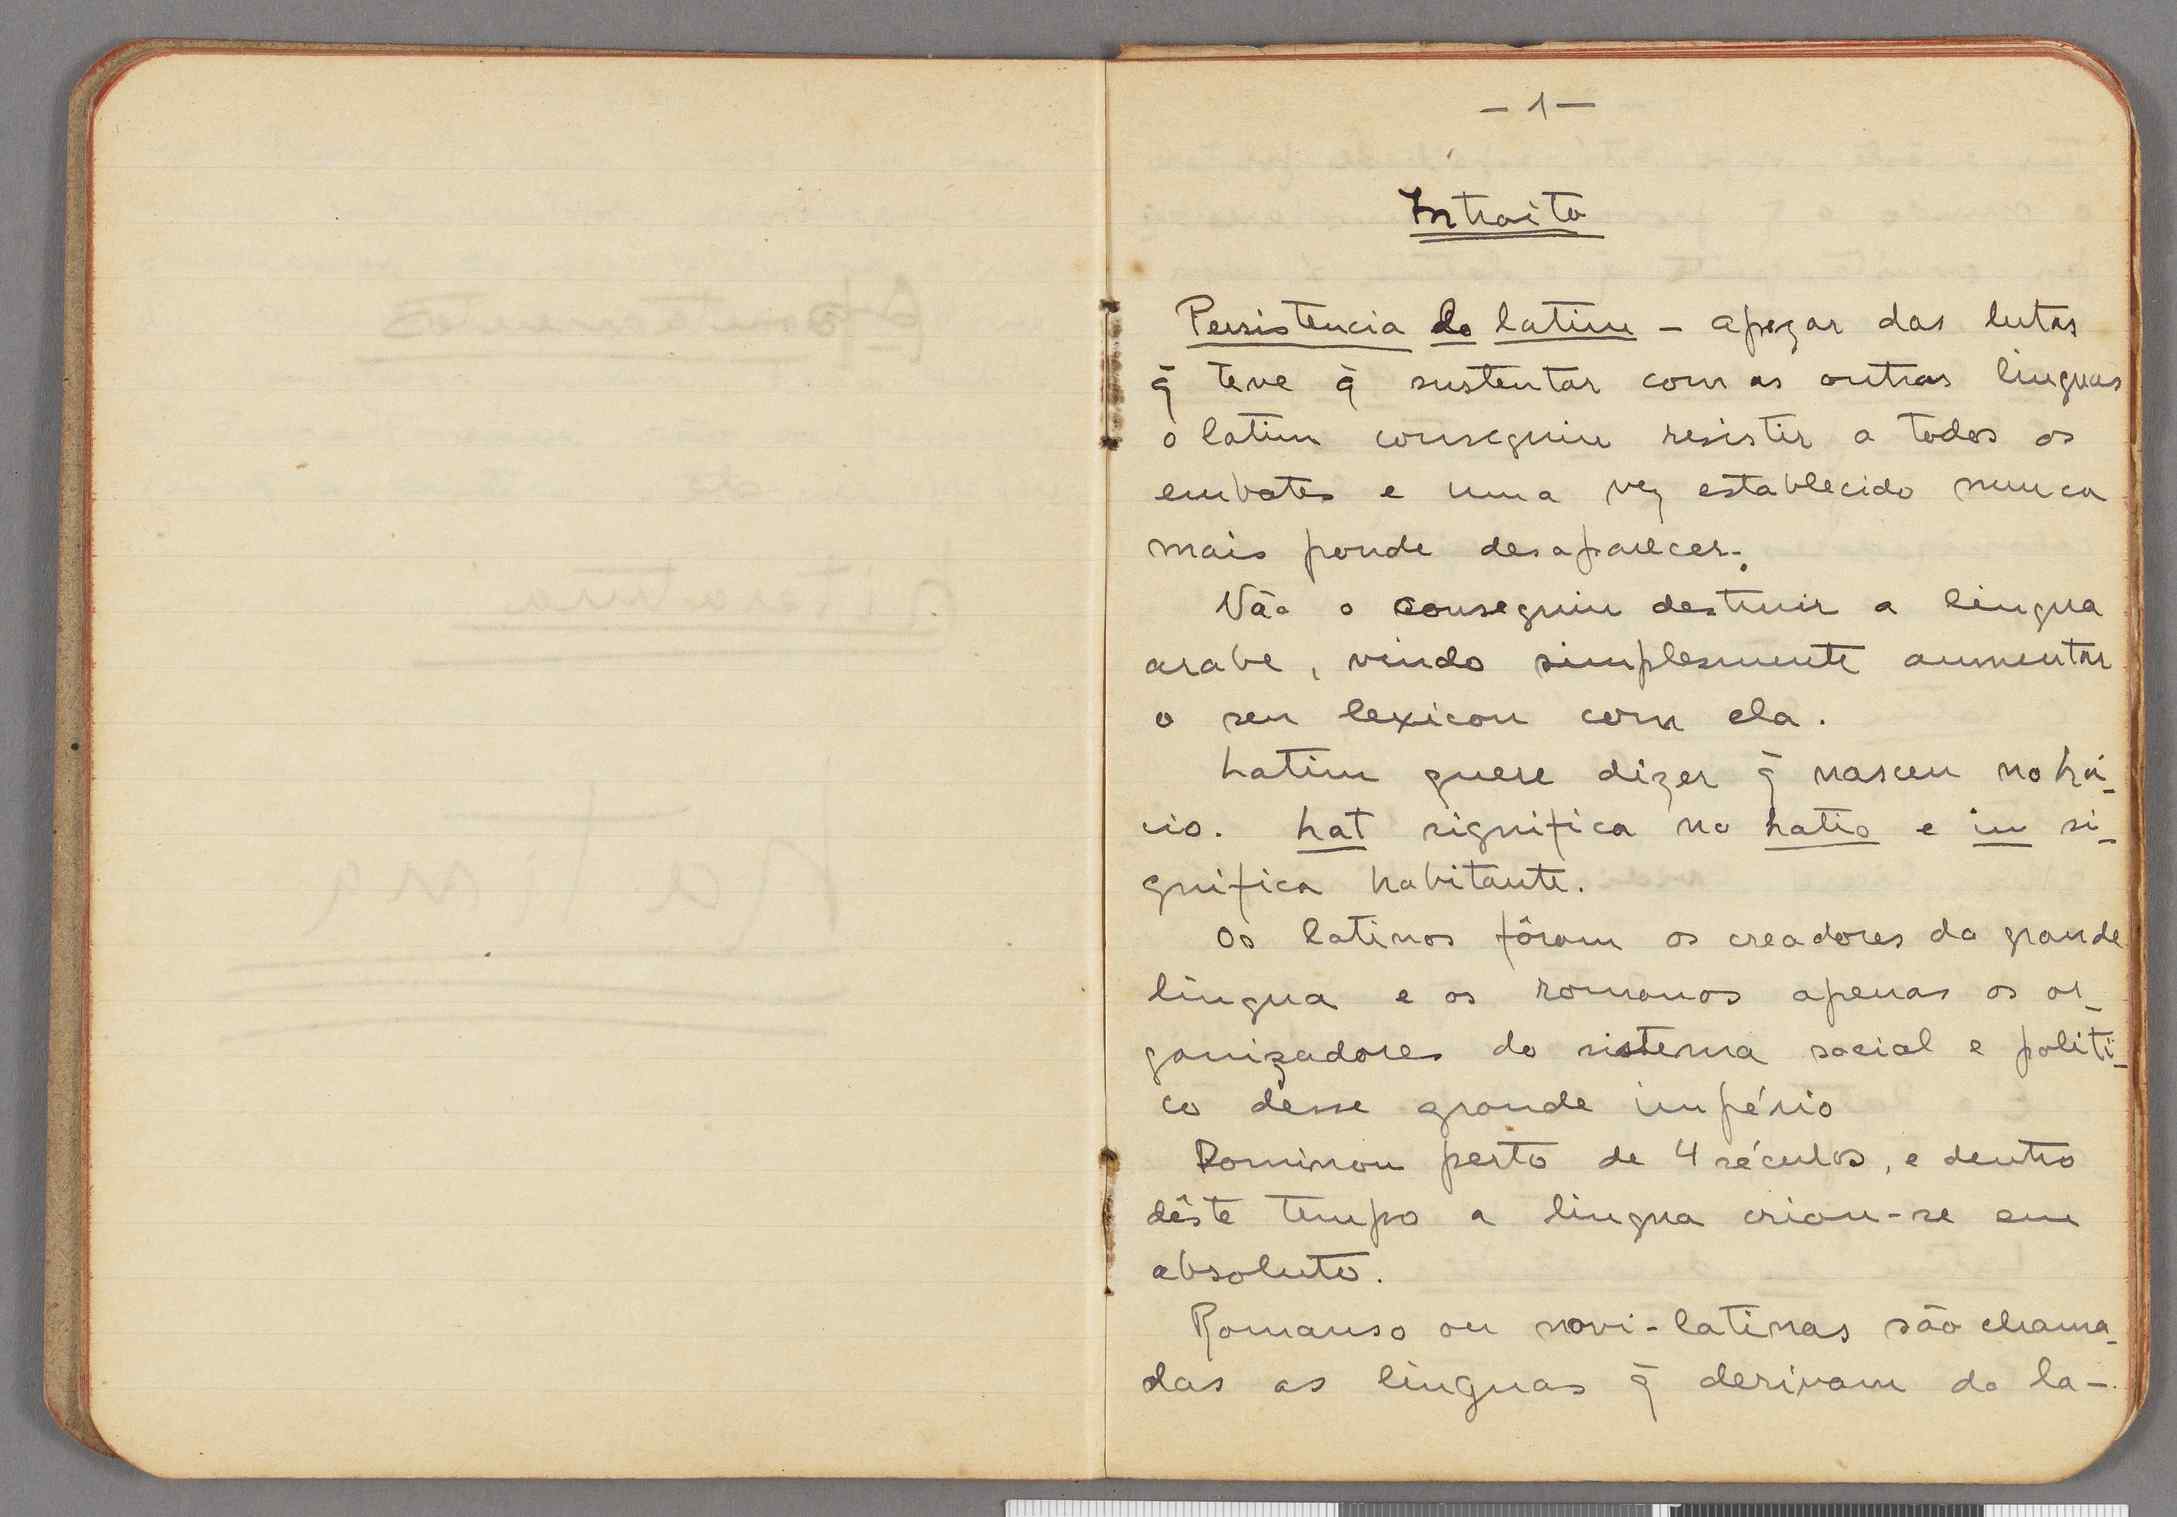 - 1 -
Intraito
Persistencia do latim - apezar das lutas
q̃ teve q̃ sustentar com as outras linguas
o latim conseguiu resistir a todos os
embates e uma vez establecido nunca
mais poude desaparecer.
Não o conseguiu destruir a lingua
arabe, vindo simplesmente aumentar
o seu lexicon com ela.
Latim quere dizer q̃ nasceu no Lá-
cio. Lat significa no Latio e in si-
gnifica habitante.
Os latinos fôram os creadores da grande
lingua e os romanos apenas os or-
ganizadores do sistema social e politi-
co desse grande império
Dominou perto de 4 séculos, e dentro
dêste tempo a lingua criou-se em
absoluto.
Romanso ou novi-latinas são chama-
das as linguas q̃ derivam do la-